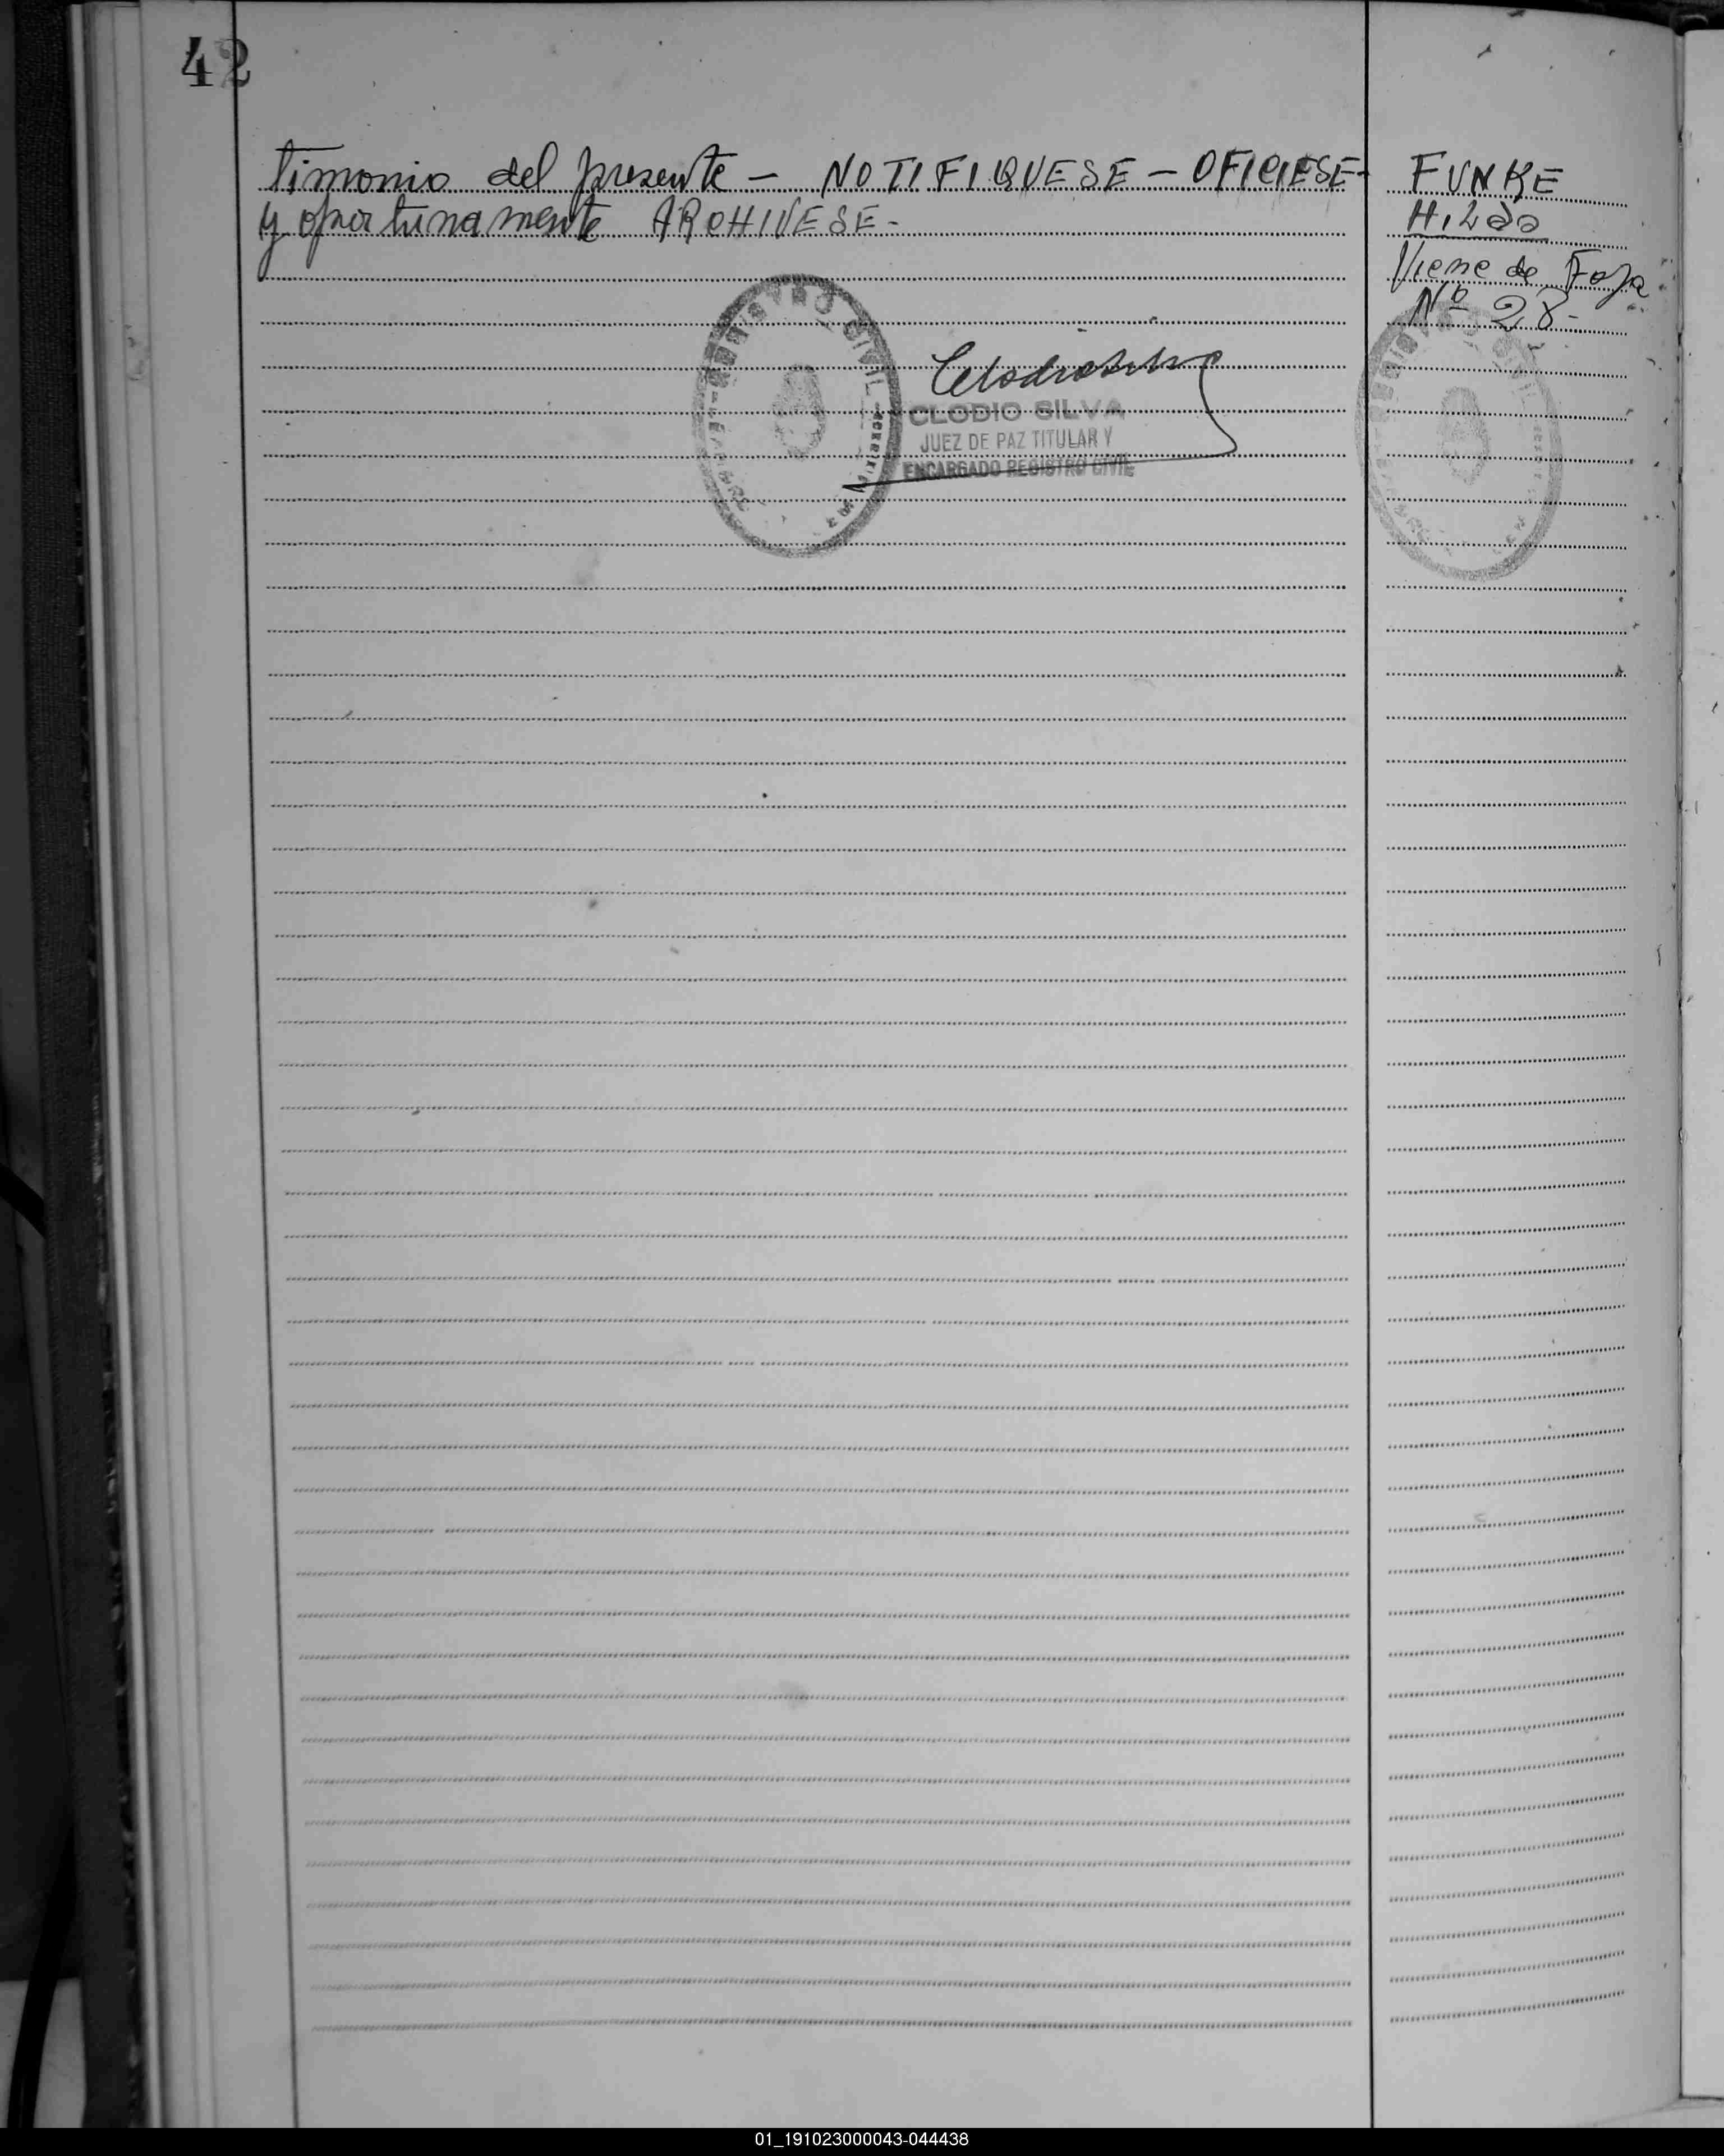 42
timonio del presente - NOTIFIQUESE - OFICIESE-
y oportunamente ARCHIVESE-
FUNKE
Hilda
Viene de Foja
Nº 28-
REGISTRO CIVIL
Clodio Silva
CLODIO SILVA
JUEZ DE PAZ TITULAR Y
ENCARGADO REGISTRO CIVIL
01_191023000043-044438